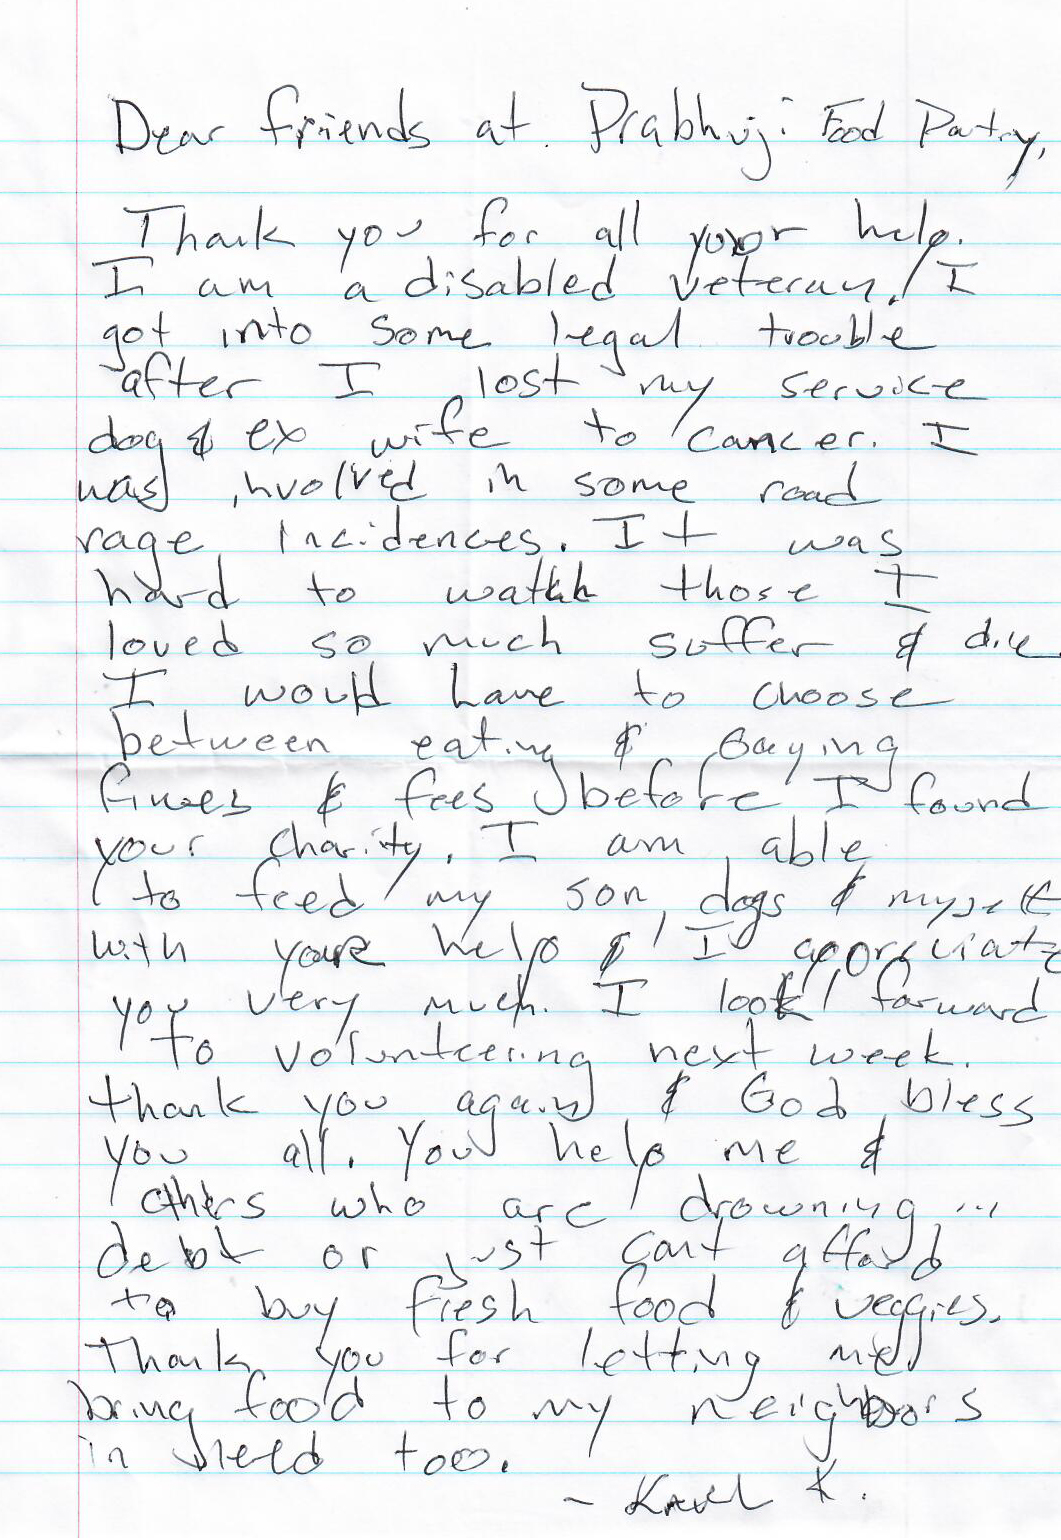 Dear friends at Prabhuji Food Pantry,
Thank you for all your help.
I am a disabled veteran. I
got into some legal trouble
after I lost my service
dog & ex wife to cancer. I
was involved in some road
rage incidences. It was
hard to watch those I
loved so much suffer & die
I would have to choose
between eating & paying
fines & fees before I found
your charity. I am able
to feed my son, dogs & myself
with your help & I appreciate
you very much. I look forward
to volunteering next week.
thank you again & God bless
you all. You help me &
others who are drowning ...
debt or just cant afford
to buy fresh food & veggies.
Thank you for letting me
bring food to my neighbors
in need too.
- Karl K.